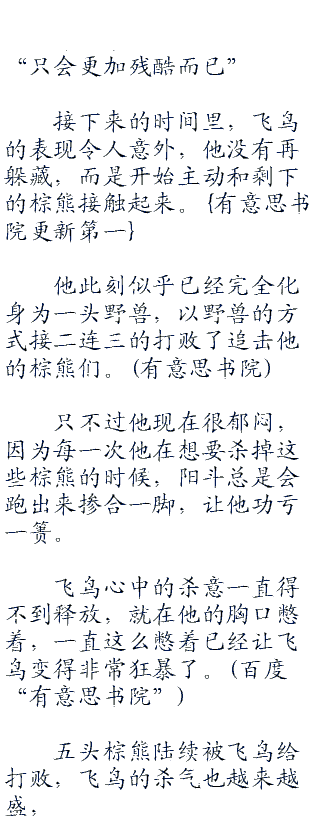 “只会更加残酷而已”
接下来的时间里，飞鸟
的表现令人意外，他没有再
躲藏，而是开始主动和剩下
的棕熊接触起来。{有意思书
院更新第一}
他此刻似乎已经完全化
身为一头野兽，以野兽的方
式接二连三的打败了追击他
的棕熊们。(有意思书院)
只不过他现在很郁闷，
因为每一次他在想要杀掉这
些棕熊的时候，阳斗总是会
跑出来掺合一脚，让他功亏
一篑。
飞鸟心中的杀意一直得
不到释放，就在他的胸口憋
着，一直这么憋着已经让飞
鸟变得非常狂暴了。(百度
“有意思书院”)
五头棕熊陆续被飞鸟给
打败，飞鸟的杀气也越来越
盛，